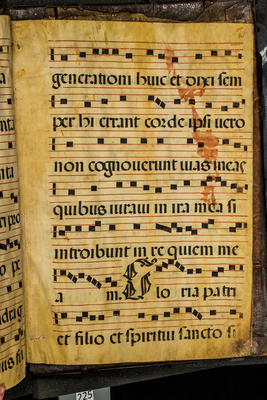 generationi huic et dixi sem
per hi errant corde ipsi vero
non cognoverunt vias meas
quibus iuravi in ira mea si
introibunt in re quiem me
a m. Glo ria patri
et filio et spiritui sancto si
225